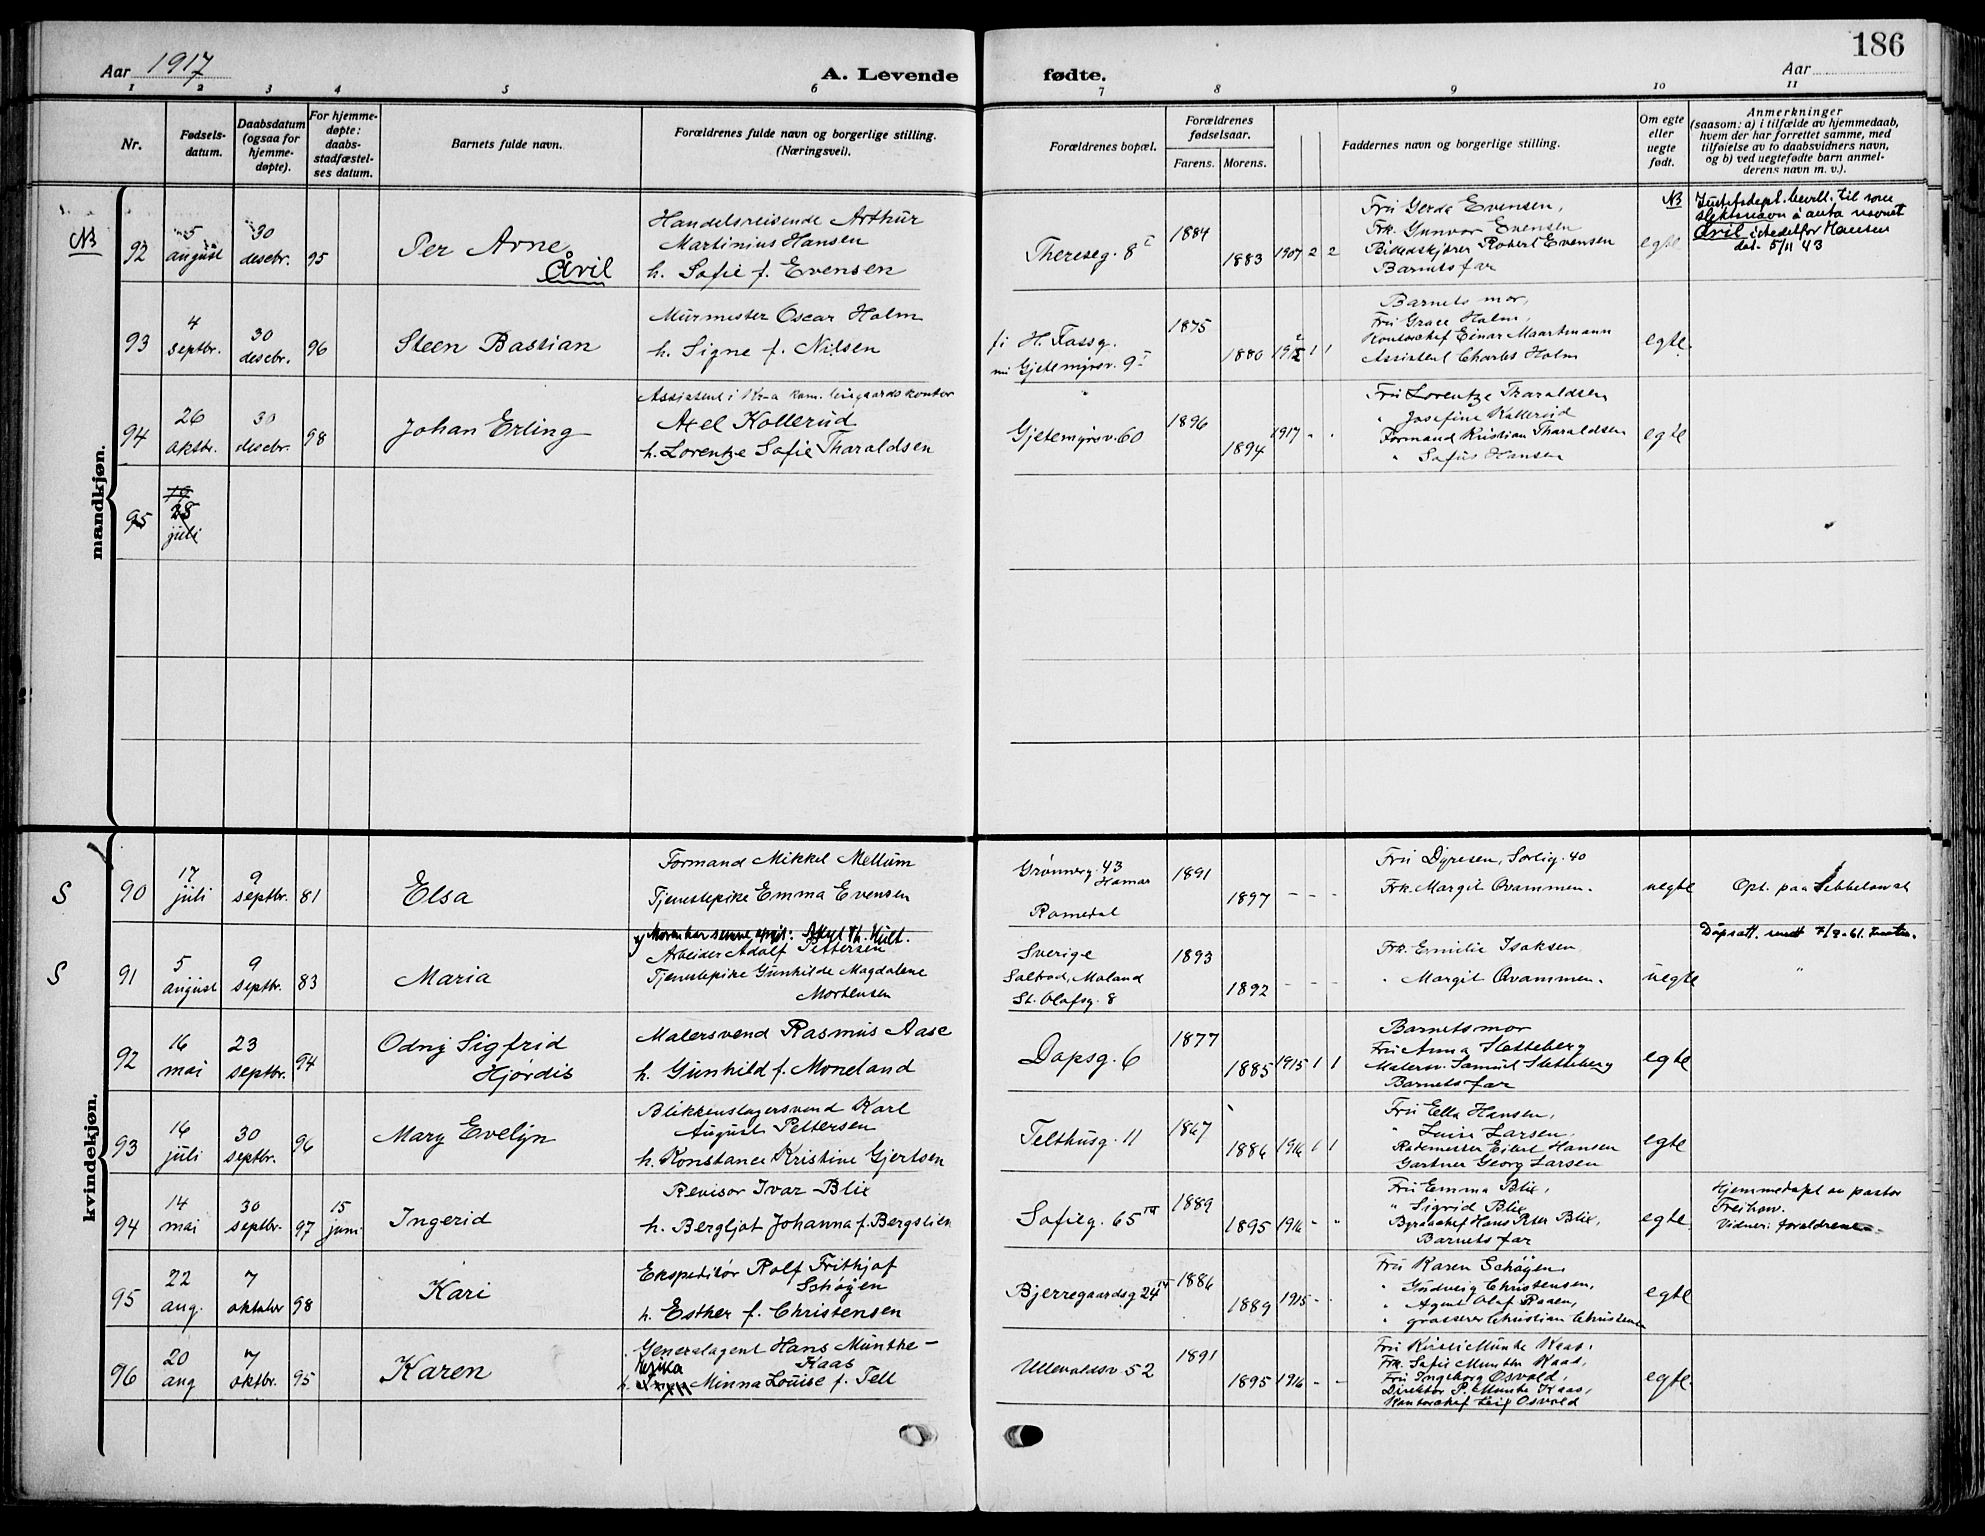 186
Aar 1917
A. Levende fødte.
Aar
1 2 3 4 5 6 7 8 9 10 11
Nr.
Fødsels-
datum.
Daabsdatum
(ogsaa for
hjemme-
døpte).
For hjemme-
døpte:
daabs-
stadfæstel-
ses datum.
Barnets fulde navn.
Forældrenes fulde navn og borgerlige stilling.
(Næringsvei).
Forældrenes bopæl.
Forældrenes
fødselsaar.
Farens. Morens.
Faddernes navn og borgerlige stilling.
Om egte
eller
uegte
født.
Anmerkninger
(saasom: a) i tilfælde av hjemmedaab,
hvem der har forrettet samme, med
tilføielse av to daabsvidners navn,
og b) ved uegtefødte barn anmel-
derens navn m. v.).
mandkjøn.
NB
92
5
august
30
desebr.
95
Per Arne
Åvil
Handelsreisende Arthur
Martinius Hansen
h. Sofie f. Evensen
Thereseg. 8 I
1884
1883
1907 2 2
Fru Gerda Evensen,
Frk. Gunvor Evensen
Robert Evensen
Barnets far
egte
NB
Justitsdept. bevilt. til som
slektsnavn å anta navnet
Åvil istedetfor Hansen
dat. 5/11 43
93
4
septbr.
30
desebr.
96
Steen Bastian
Murmester Oscar Holm
h. Signe f. Nilsen
f. H. Tassg.
nu Gjetemyrsv. 9 I
1875
1880
1912 1 1
Barnets mor,
Fru Grace Holm,
Kontorchef Einar Maartmann
Assistent Charles Holm
egte.
94
26
oktbr.
30
desebr.
98
Johan Erling
Assistent i Kr-a kom. leiegaardskontor
Axel Kollerud
h. Lorentze Sofie Tharaldsen
"
Gjetemyrsv. 60
1896
1894
1917 " "
Fru Lorentze Tharaldsen
" Josefine Kollerud
Formand Kristian Tharaldsen
" Sofus Hansen
egte
95
28
juli
kvindekjøn.
S
90
17
juli
9
septbr.
81
Elsa
Formand Mikkel Mellum
Tjenestepike Emma Evensen
Grønnerg. 43
Hamar
Romedal
1891
1897
- - -
Fru Dyresen, Sorlig. 40
Frk. Margit Qvammen.
uegte
Opl. paa
S
91
5
august
9
septbr.
83
Maria
Arbeider Adolf Pettersen
Tjenestepike Gunhilde Magdalene
Mortensen
Sverige
Saltbod, Moland
St. Olafsg. 8
1893
1892
- - -
Frk. Emilie Isaksen
" Margit Qvammen.
uegte
Dåpsatt. sendt 7/9-61.
"
92
16
mai
23
septbr.
94
Odny Sigfrid
Hjørdis
Malersvend Rasmus Aase
h. Gunhild f. Moneland
Dopsg. 6
1877
1885
1915 1 1
Barnets mor
Fru Anna Sletteberg
Malersv. Samuel Sletteberg
Barnets far
egte
93
16
juli
30
septbr.
96
Mary Evelyn
Blikkenslagersvend Karl
August Pettersen
h. Konstance Kristine Gjertsen
Telthusg. 11
1867
1886
1916 1 1
Fru Ella Hansen,
" Luise Larsen,
Rodemester Eilert Hansen
Gartner Georg Larsen
egte
94
14
mai
30
septbr.
97
15
juni
Ingerid
Revisor Ivar Blix
h. Bergljot Johanna f. Bergslien
Sofieg. 65 III
1889
1895
1916 " "
Fru Emma Blix,
" Sigrid Blix
Byraachef Hans Peter Blix,
Barnets far
egte
Hjemmedøpt av pastor
Freihow.
Vidner: forældrene
95
22
aug.
7
oktober
98
Kari
Ekspeditør Rolf Frithjof
Schøyen
h. Esther f. Christensen
Bjerregaardsg 24 IV
1886
1889
1915 - -
Fru Karen Schøyen,
" Gudveig Christensen,
" Agent Olaf Raaen,
" grosserer Christian Christensen
egte
96
20
aug
7
oktbr.
95
Karen
Generalagent Hans Munthe-
Kaas
Erika
h. Minna Louise f. Tell
Ullevaldsv. 52
1891
1895
1916 - -
Fru Kirsti Munthe Kaas,
Frk. Sofie Munthe Kaas,
Fru Ingeborg Osvold,
Direktør P. Munthe Kaas,
Kontorchef Leif Osvold
egte.